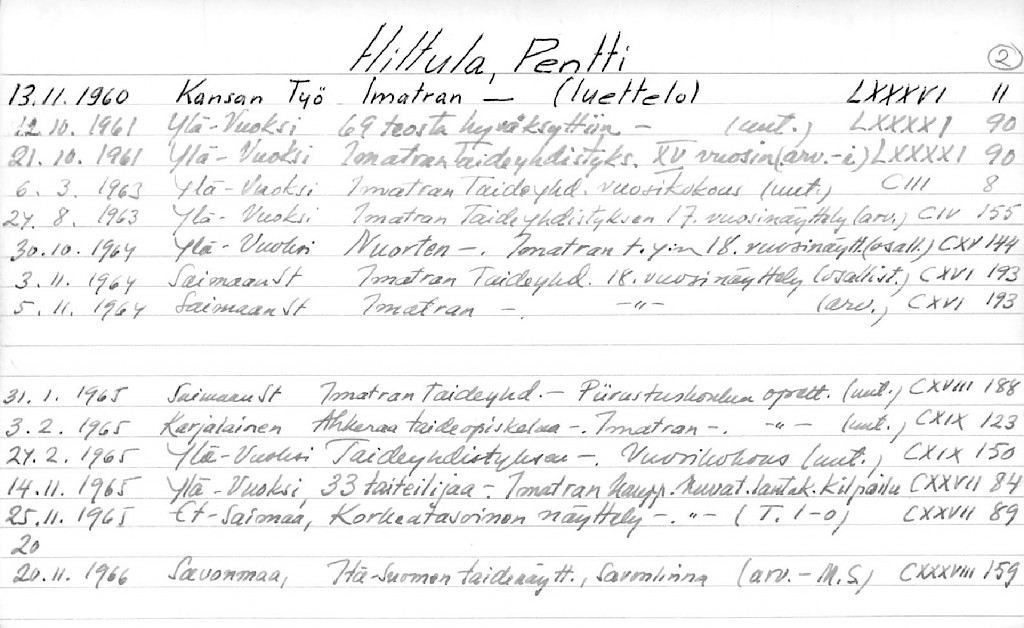 Hiltula, Pentti
2
13.11.1960 Kansan Työ Imatran — (luettelo) LXXXVI 11
12.10.1961 Ylä-Vuoksi 69 teosta hyväksyttiin – (uut.) LXXXXI 90
21.10.1961 Ylä-Vuoksi Imatran Taideyhdistyks. XV vuosin (arv.-i) LXXXXI 90
6.3.1963 Ylä-Vuoksi Imatran Taideyhd. vuosikokous (uut.) CIII 8
27.8.1963 Ylä-Vuoksi Imatran Taideyhdistyksen 17. vuosinäyttely (arv.) CIV 155
30.10.1964 Ylä-Vuoksi Nuorten –. Imatran t.y:n 18. vuosinäytt. (osall.) CXV 144
3.11.1964 SaimaanSt Imatran Taideyhd. 18. vuosinäyttely (osallist.) CXVI 193
5.11.1964 SaimaanSt Imatran –. –"– (arv.) CXVI 193
31.1.1965 SaimaanSt Imatran Taideyhd. – Piirustuskoulun opett. (uut.) CXVIII 188
3.2.1965 Karjalainen Ahkeraa taideopiskelua –. Imatran –. –"– (uut.) CXIX 123
27.2.1965 Ylä-Vuoksi Taideyhdistyksen –. Vuosikokous (uut.) CXIX 150
14.11.1965 Ylä-Vuoksi, 33 taiteilijaa – Imatran kaupp. kuvat. lautak. kilpailu CXXVII 84
25.11.1965 Et-Saimaa, Korkeatasoinen näyttely –. "– (T. I-o) CXXVII 89
20
20.11.1966 Savonmaa, Itä-Suomen taidenäytt., Savonlinna (arv. – M.S.) CXXXVIII 159